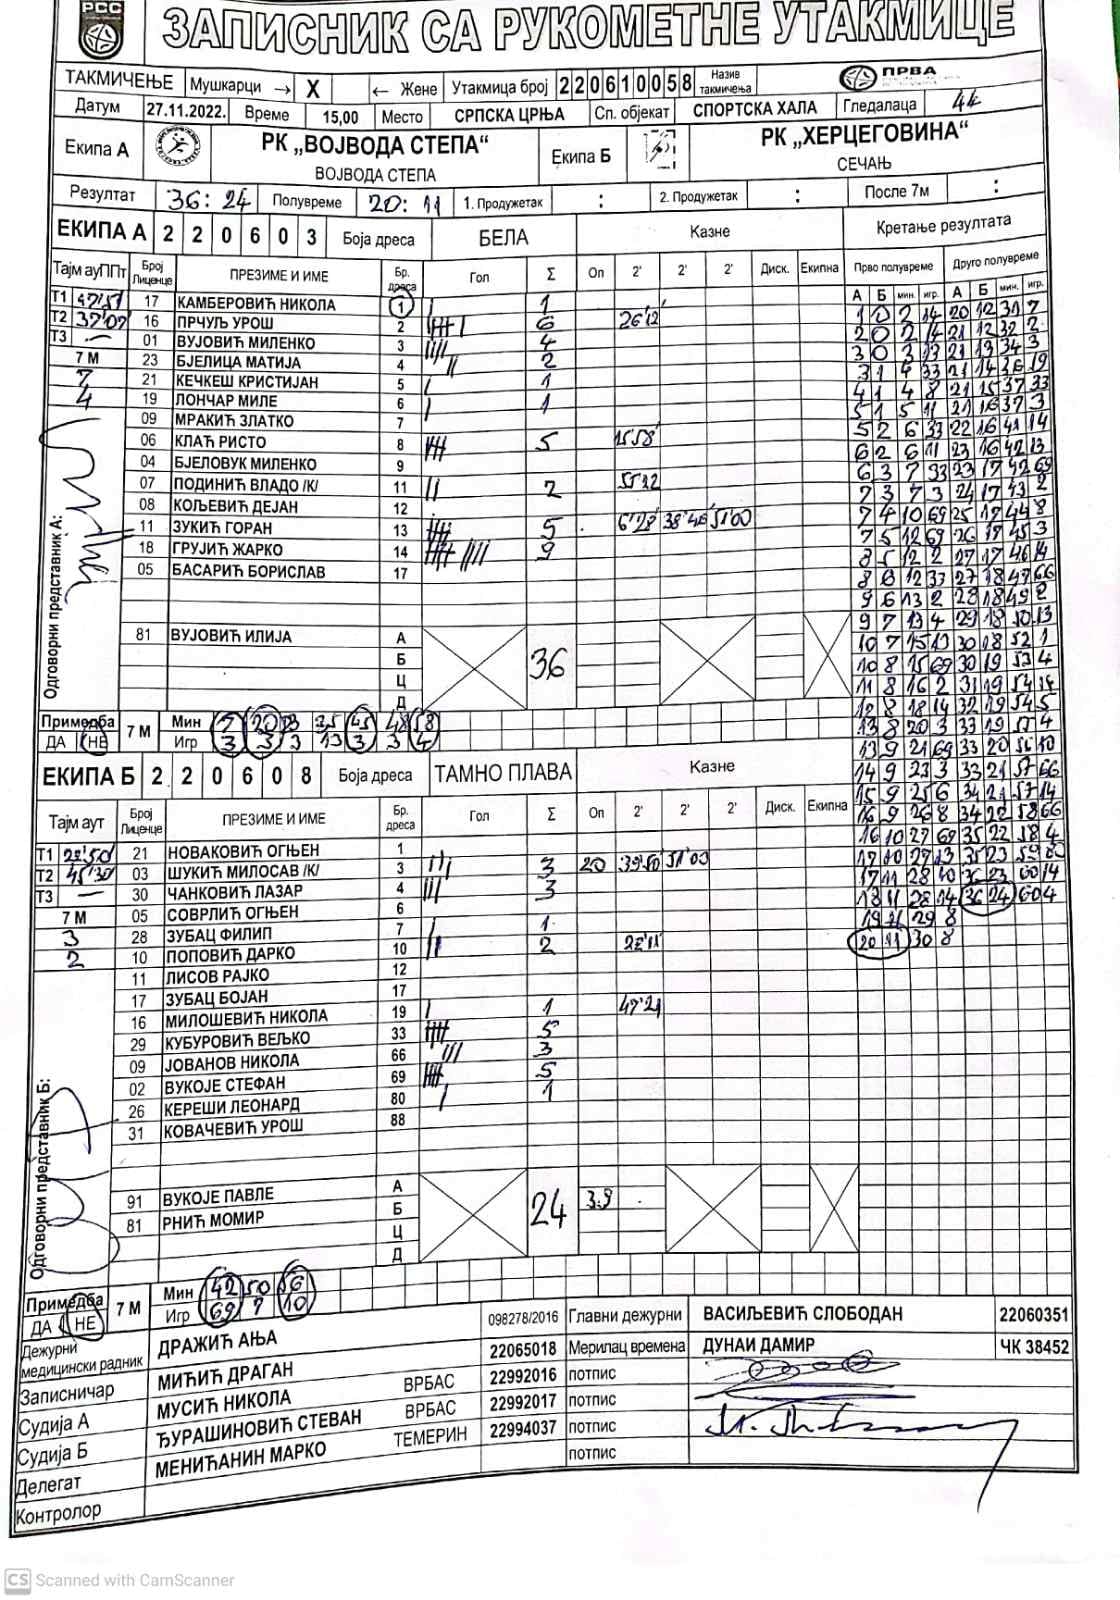 РСС
ЗАПИСНИК СА РУКОМЕТНЕ УТАКМИЦЕ
ТАКМИЧЕЊЕ Мушкарци → X ← Жене Утакмица број 220610058 Назив такмичења ПРВА
Датум 27.11.2022. Време 15,00 Место СРПСКА ЦРЊА Сп. објекат СПОРТСКА ХАЛА Гледалаца 44
Екипа А РК „ВОЈВОДА СТЕПА“ Екипа Б РК „ХЕРЦЕГОВИНА“
ВОЈВОДА СТЕПА СЕЧАЊ
Резултат 36:24 Полувреме 20:11 1. Продужетак : 2. Продужетак : После 7м :
ЕКИПА А 2 2 0 6 0 3 Боја дреса БЕЛА Казне Кретање резултата
Тајм ауППт Број Лиценце ПРЕЗИМЕ И ИМЕ Бр. дреса Гол Σ Оп 2' 2' 2' Диск. Екипна Прво полувреме Друго полувреме
А Б мин. игр. А Б мин. игр.
Т1 17 КАМБЕРОВИЋ НИКОЛА 1 1
Т2 37'07 16 ПРЧУЉ УРОШ 2 6 26'12
Т3 — 01 ВУЈОВИЋ МИЛЕНКО 3 4
7 М 23 БЈЕЛИЦА МАТИЈА 4 2
7 21 КЕЧКЕШ КРИСТИЈАН 5 1
4 19 ЛОНЧАР МИЛЕ 6 1
09 МРАКИЋ ЗЛАТКО 7
06 КЛАЋ РИСТО 8 5 15'58
04 БЈЕЛОВУК МИЛЕНКО 9
07 ПОДИНИЋ ВЛАДО /К/ 11 2 55'22
08 КОЉЕВИЋ ДЕЈАН 12
11 ЗУКИЋ ГОРАН 13 5 6'28 38'46 51'00
18 ГРУЈИЋ ЖАРКО 14 9
05 БАСАРИЋ БОРИСЛАВ 17
81 ВУЈОВИЋ ИЛИЈА А 36
Б
Ц
Д
Одговорни представник А:
Примедба ДА НЕ 7 М
Мин 7 20 23 25 45 48 58
Игр 3 3 3 13 3 3 4
1 0 2 14 20 12 31 7
2 0 2 14 21 12 32 2
3 0 3 13 21 13 34 3
3 1 4 33 21 14 36 19
4 1 4 8 21 15 37 33
5 1 5 11 21 16 37 3
5 2 6 33 22 16 41 14
6 2 6 11 23 16 42 13
6 3 7 33 23 17 42 69
7 3 7 3 24 17 43 2
7 4 10 69 25 17 44 8
7 5 12 69 26 17 45 3
8 5 12 2 27 17 46 14
8 6 12 33 27 18 47 66
9 6 13 2 28 18 49 2
9 7 13 4 29 18 50 13
10 7 15 13 30 18 52 1
10 8 15 69 30 19 53 4
11 8 16 2 31 19 54 14
12 8 18 14 32 19 54 5
13 8 20 3 33 19 57 4
13 9 21 69 33 20 56 10
14 9 23 3 33 21 57 66
15 9 25 6 34 21 57 14
16 9 26 8 34 22 58 66
16 10 27 69 35 22 58 4
17 10 27 13 35 23 59 80
17 11 28 10 36 23 60 14
18 11 28 14 36 24 60 4
19 11 29 8
20 11 30 8
ЕКИПА Б 2 2 0 6 0 8 Боја дреса ТАМНО ПЛАВА Казне
Тајм аут Број Лиценце ПРЕЗИМЕ И ИМЕ Бр. дреса Гол Σ Оп 2' 2' 2' Диск. Екипна
Т1 22'50 21 НОВАКОВИЋ ОГЊЕН 1
Т2 45'30 03 ШУКИЋ МИЛОСАВ /К/ 3 3 20 39'50 51'00
Т3 — 30 ЧАНКОВИЋ ЛАЗАР 4 3
7 М 05 СОВРЛИЋ ОГЊЕН 6
3 28 ЗУБАЦ ФИЛИП 7 1
2 10 ПОПОВИЋ ДАРКО 10 2 22'11
11 ЛИСОВ РАЈКО 12
17 ЗУБАЦ БОЈАН 17
16 МИЛОШЕВИЋ НИКОЛА 19 1 47'21
29 КУБУРОВИЋ ВЕЉКО 33 5
09 ЈОВАНОВ НИКОЛА 66 3
02 ВУКОЈЕ СТЕФАН 69 5
26 КЕРЕШИ ЛЕОНАРД 80 1
31 КОВАЧЕВИЋ УРОШ 88
91 ВУКОЈЕ ПАВЛЕ А 24 39
81 РНИЋ МОМИР Б
Ц
Д
Одговорни представник Б:
Примедба ДА НЕ 7 М
Мин 42 50 56
Игр 69 7 10
Дежурни медицински радник ДРАЖИЋ АЊА 098278/2016 Главни дежурни ВАСИЉЕВИЋ СЛОБОДАН 22060351
Записничар МИЋИЋ ДРАГАН 22065018 Мерилац времена ДУНАИ ДАМИР ЧК 38452
Судија А МУСИЋ НИКОЛА ВРБАС 22992016 потпис
Судија Б ЂУРАШИНОВИЋ СТЕВАН ВРБАС 22992017 потпис
Делегат МЕНИЋАНИН МАРКО ТЕМЕРИН 22994037 потпис
Контролор потпис
CS Scanned with CamScanner